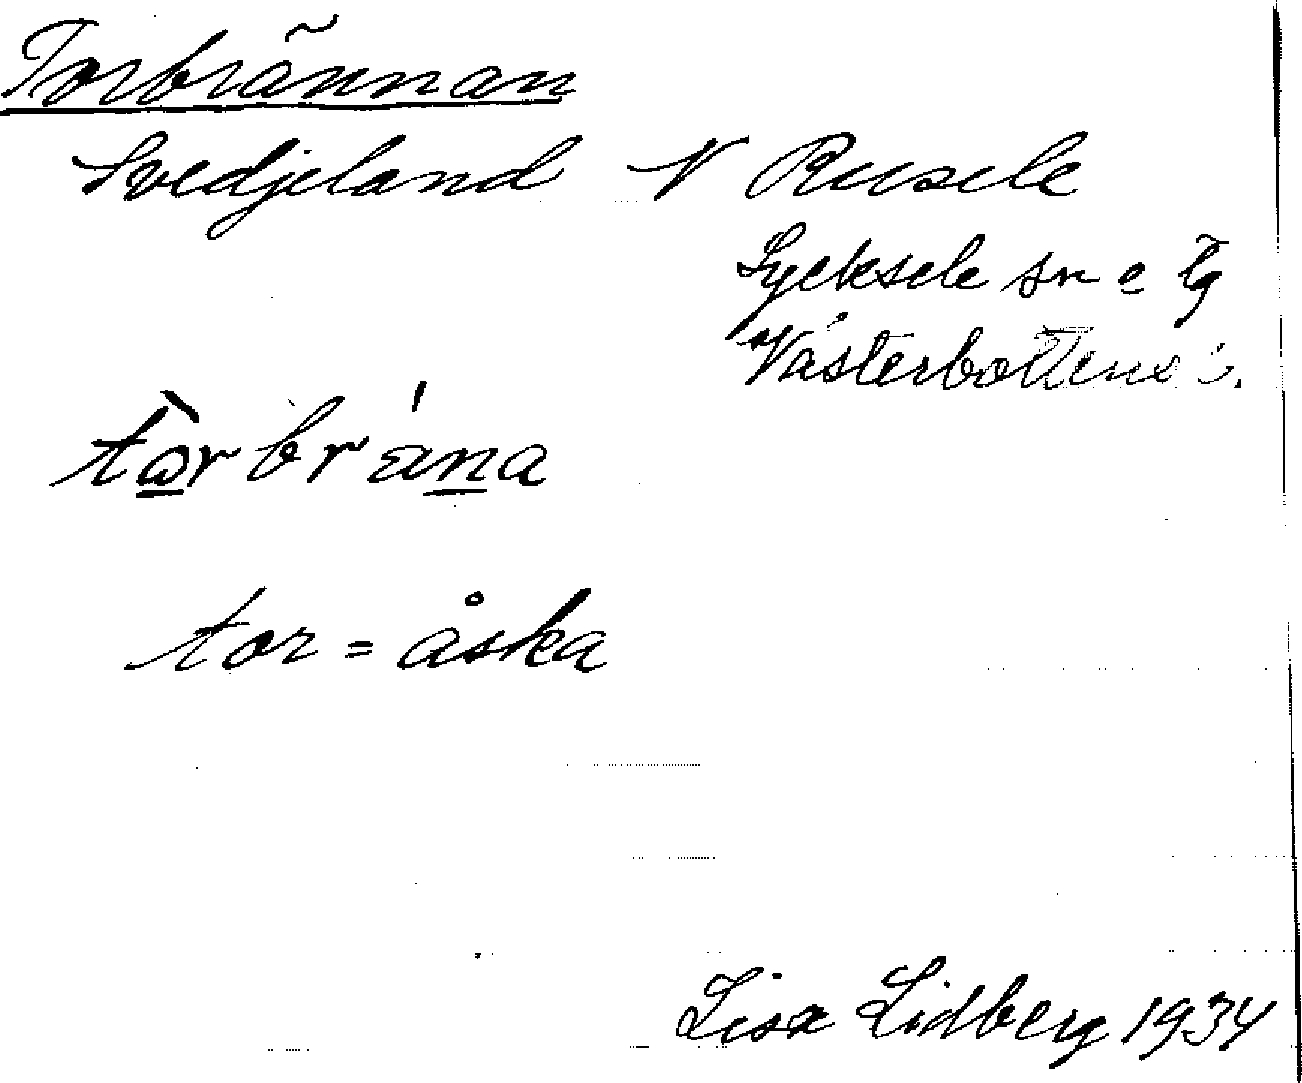 Torbrännan
Svedjeland N Rusele
Lycksele sn o tg
Västerbottens l.
tòrbrä́na
tor = åska
Lisa Lidberg 1934